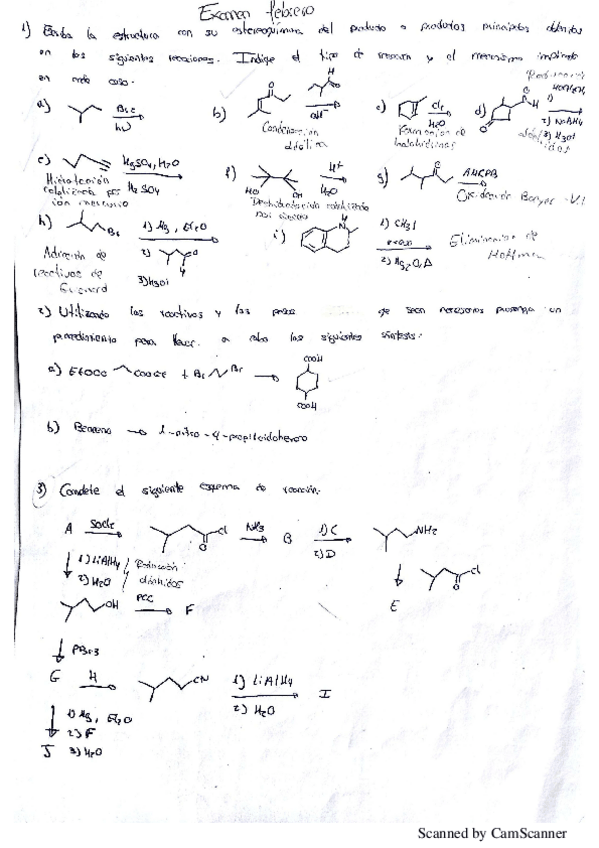 Examen febrero
1) Escriba la estructura con su estereoquímica del producto o productos principales obtenidos
en las siguientes reacciones. Indique el tipo de reacción y el mecanismo implicado
en cada caso.
a) Br2 hν
b) OH-
Condensación aldólica
c) Cl2 H2O
Formación de halohidrinas
d) 1) 2) NaBH4 3) H3O+
e) H2SO4, H2O
Hidratación catalizada por
H2SO4
f) H+ H2O
HO OH
Deshidratación catalizada
g) MCPBA
Oxidación Baeyer-V.
h) Br 1) Mg, Et2O 2) 3) H3O+
Adición de reactivos de Grignard
i) 1) CH3I exceso 2) Ag2O, Δ
Eliminación de Hoffman
2) Utilizando los reactivos y los pasos que sean necesarios proponga un
procedimiento para llevar a cabo las siguientes síntesis:
a) EtOOC COOEt + Br Br → COOH COOH
b) Benceno →
3) Complete el siguiente esquema de reacción.
A SOCl2 Cl O NH3 B 1) C 2) D NH2
1) LiAlH4 2) H2O
Reducción
Cl O
E
OH PCC F
PBr3
G H CN 1) LiAlH4 2) H2O I
1) Mg, Et2O
2) F
J 3) H2O
Scanned by CamScanner